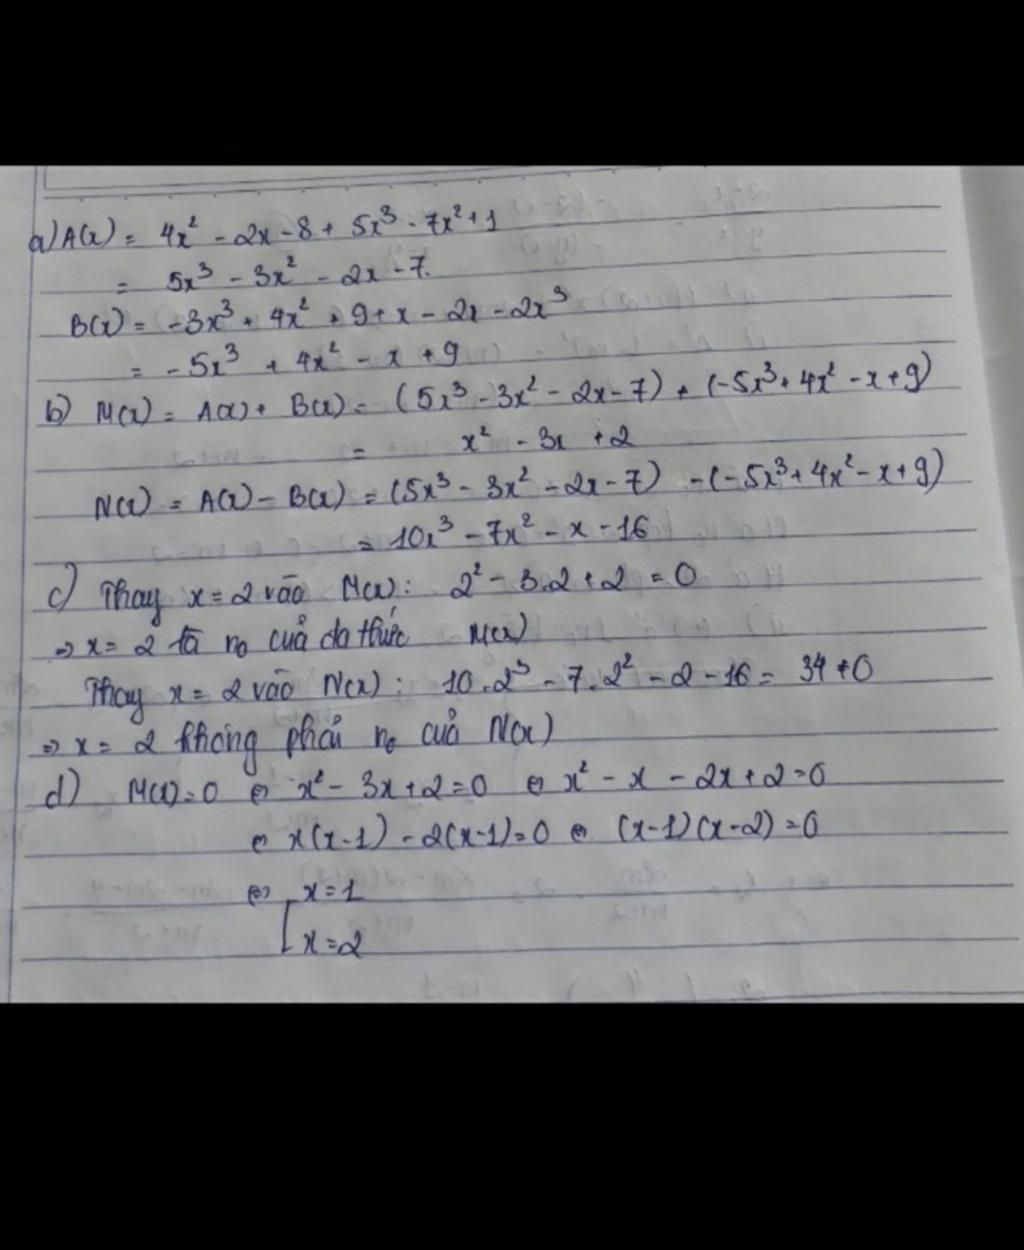 a) A(x) = 4x² - 2x - 8 + 5x³ - 7x² + 1
= 5x³ - 3x² - 2x - 7.
B(x) = -3x³ + 4x² + 9 + x - 2x - 2x³
= -5x³ + 4x² - x + 9
b) M(x) = A(x) + B(x) = (5x³ - 3x² - 2x - 7) + (-5x³ + 4x² - x + 9)
= x² - 3x + 2
N(x) = A(x) - B(x) = (5x³ - 3x² - 2x - 7) - (-5x³ + 4x² - x + 9)
= 10x³ - 7x² - x - 16
c) Thay x = 2 vào M(x): 2² - 3.2 + 2 = 0
⇒ x = 2 là n₀ của đa thức M(x)
Thay x = 2 vào N(x): 10.2³ - 7.2² - 2 - 16 = 34 ≠ 0
⇒ x = 2 không phải n₀ của N(x)
d) M(x) = 0 ⇔ x² - 3x + 2 = 0 ⇔ x² - x - 2x + 2 = 0
⇔ x(x-1) - 2(x-1) = 0 ⇔ (x-1)(x-2) = 0
⇔ [ x = 1
x = 2